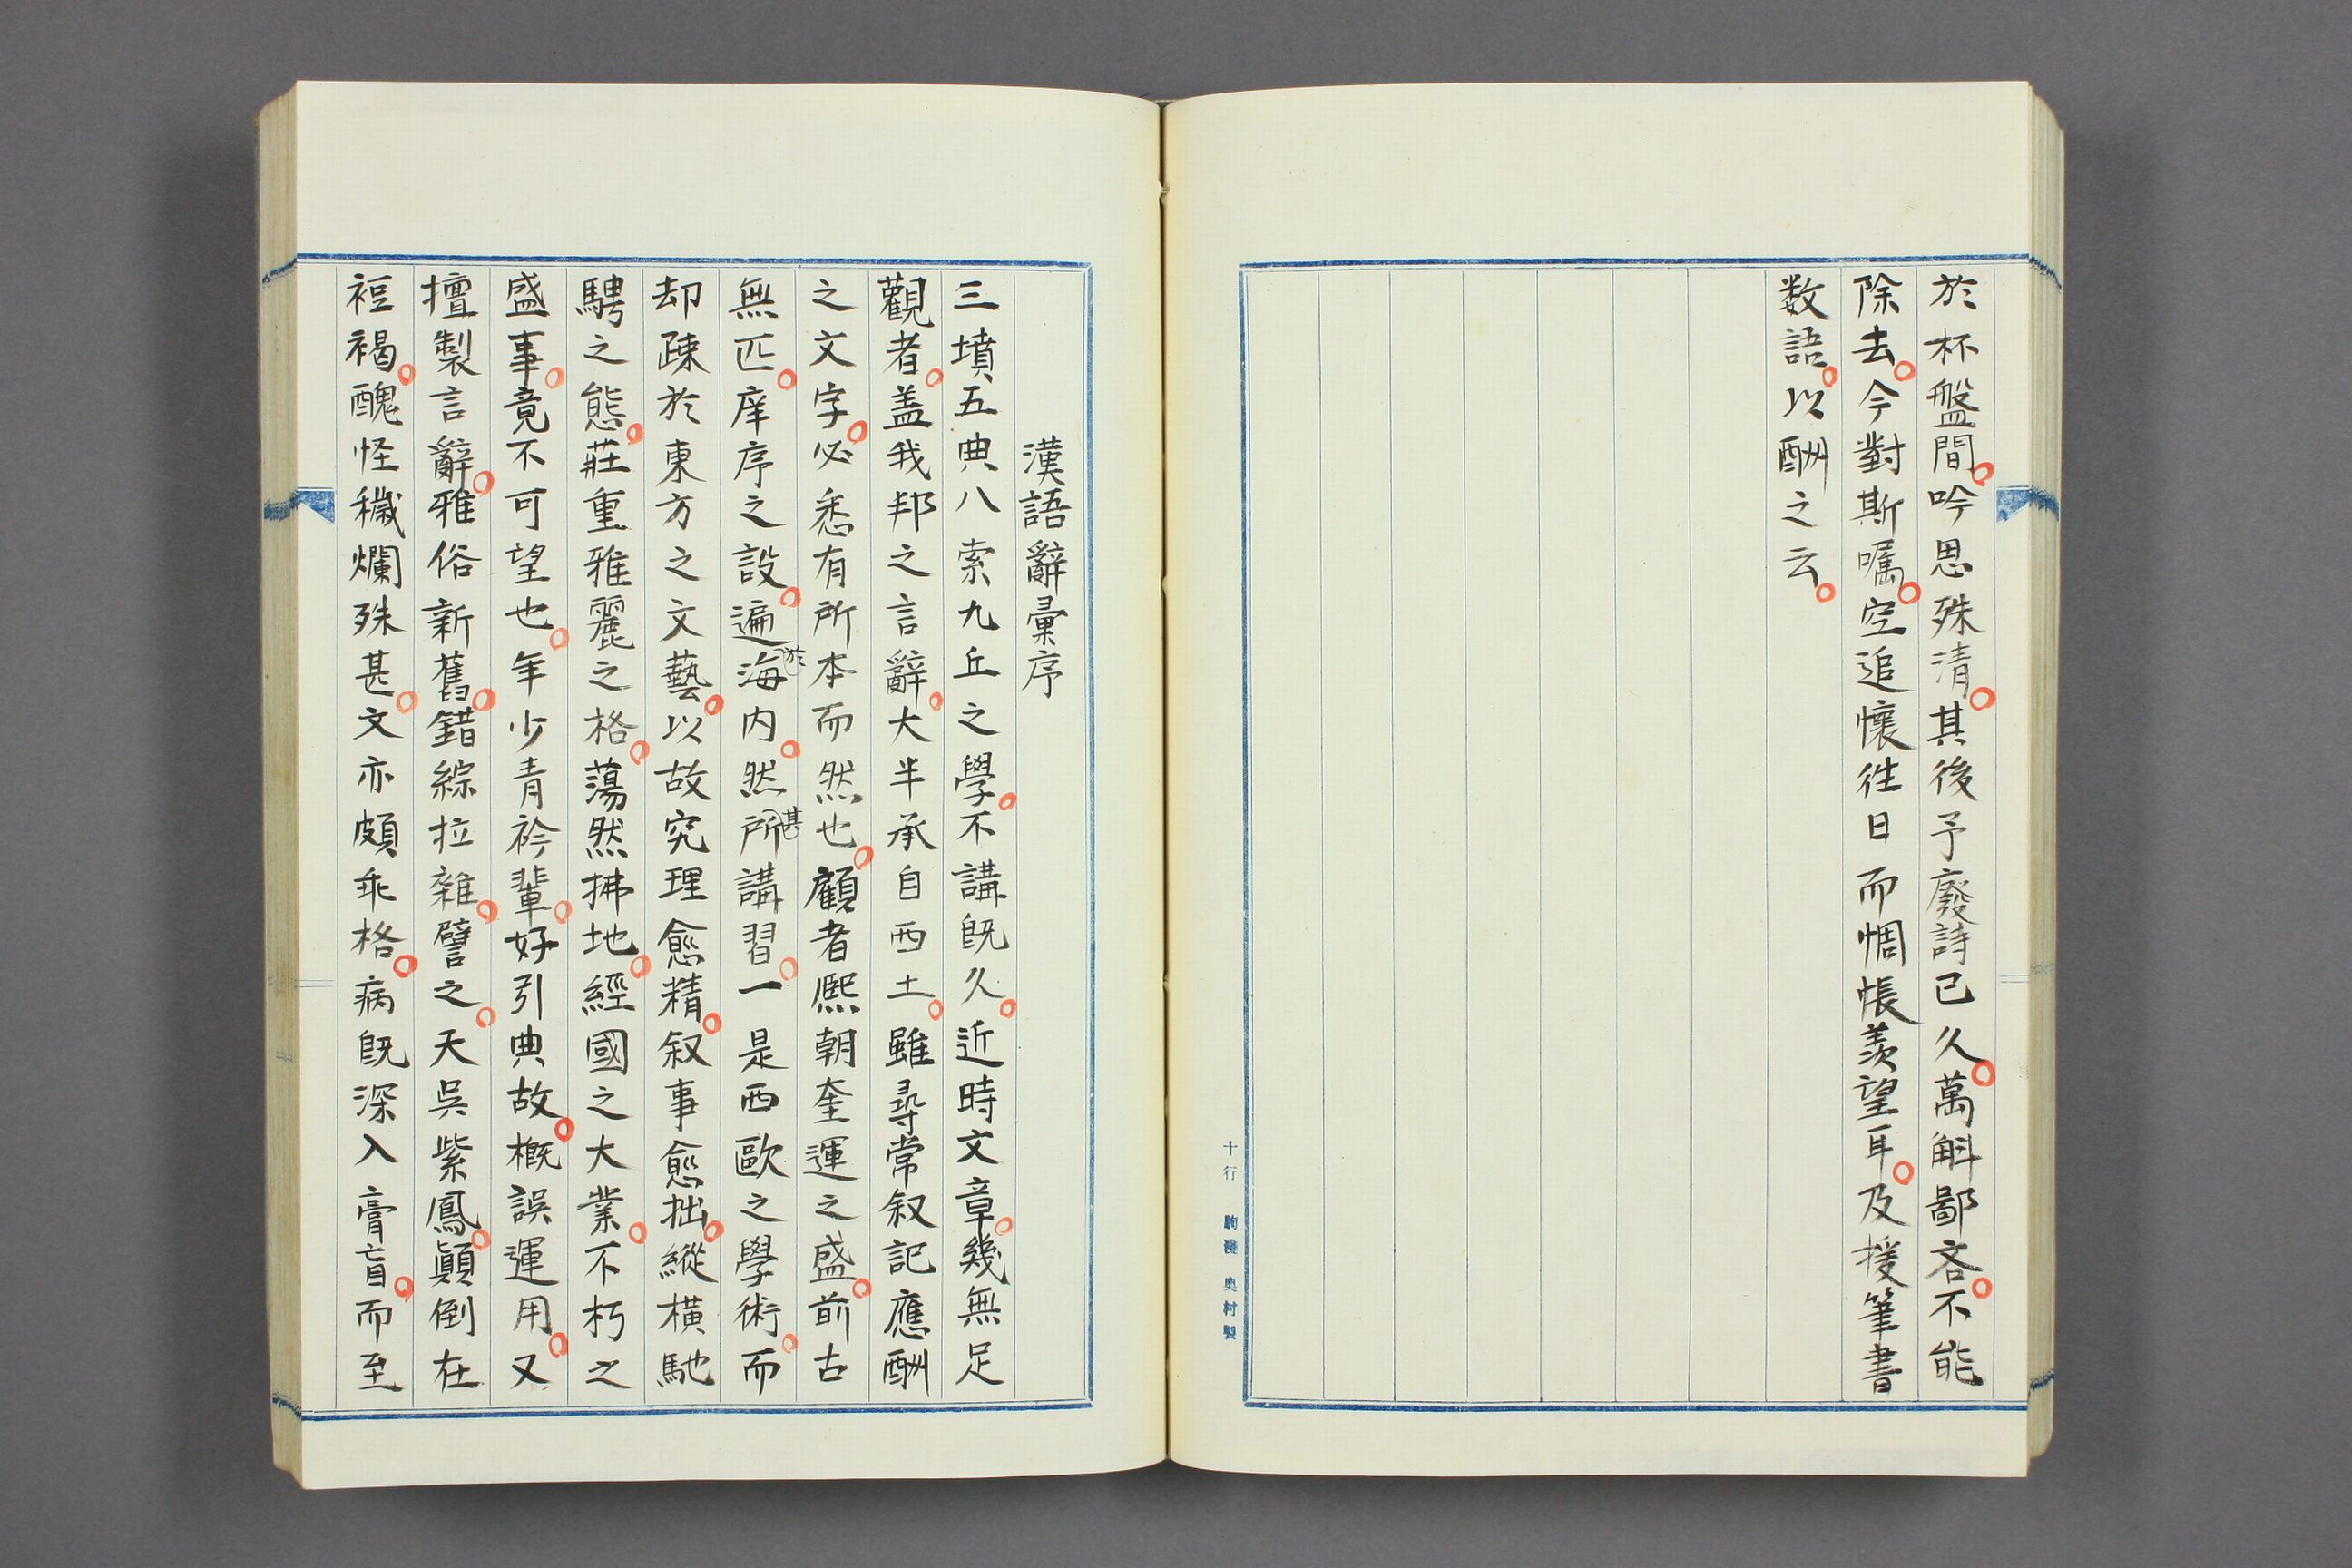 於杯盤間。吟思殊清。其後予廢詩已久。萬斛鄙吝。不能
除去。今對斯嘱。空追懷徃日而惆悵羨望耳。及援筆書
数語。以酬之云。
十行 奥村製
漢語辭彙序
三墳五典八索九丘之學。不講既久。近時文章。幾無足
觀者。盖我邦之言辭。大半承自西土。雖尋常叙記應酬
之文字。必悉有所本而然也。顧者熈朝奎運之盛。前古
無匹。庠序之設。遍於海内。然甚所講習。一是西歐之學術。而
却疎於東方之文藝。以故究理愈精。叙事愈拙。縱横馳
騁之態。莊重雅麗之格。蕩然拂地。經國之大業。不朽之
盛事。竟不可望也。年少青衿輩。好引典故。概誤運用。又
擅製言辭。雅俗新舊。錯綜拉雜。譬之。天吳紫鳳。顛倒在
裋褐。醜怪穢爛殊甚。文亦頗乖格。病既深入膏肓。而至